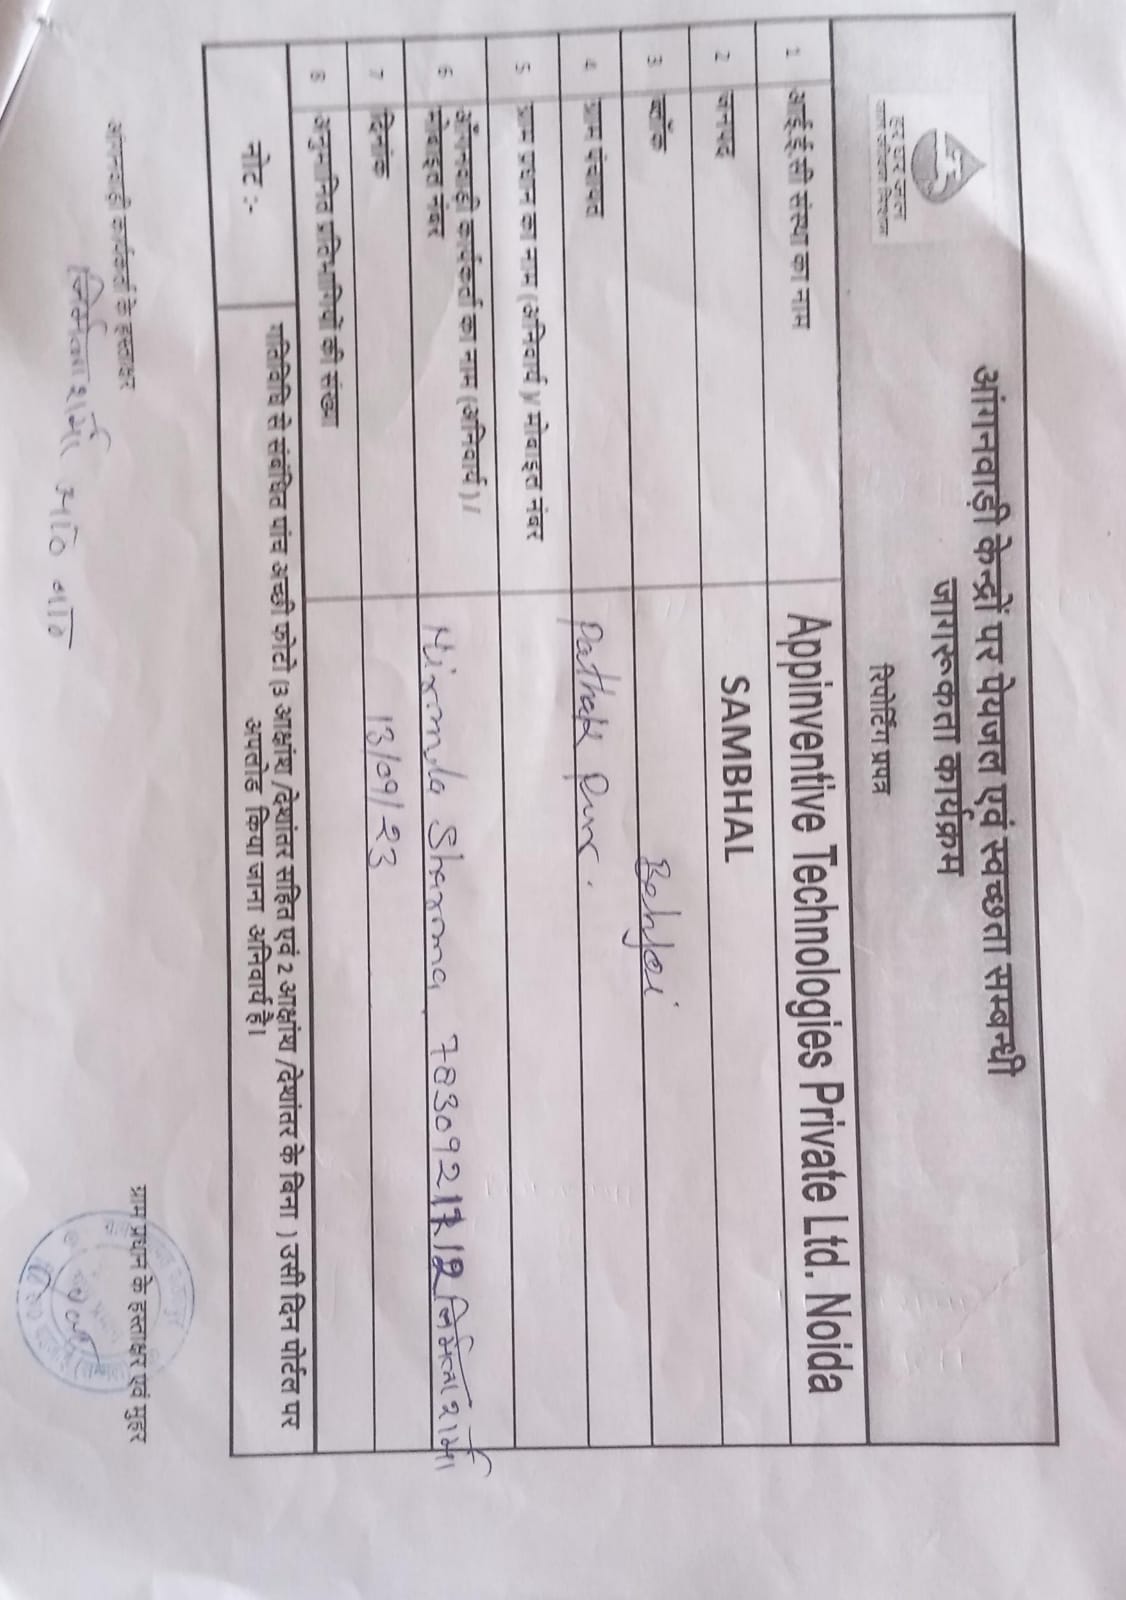 हर घर जल
जल जीवन मिशन
आंगनवाड़ी केन्द्रों पर पेयजल एवं स्वच्छता सम्बन्धी
जागरूकता कार्यक्रम
रिपोर्टिंग प्रपत्र
1 आई.ई.सी संस्था का नाम Appinventive Technologies Private Ltd. Noida
2 जनपद SAMBHAL
3 ब्लॉक Behjoi
4 ग्राम पंचायत Pathak pur.
5 ग्राम प्रधान का नाम (अनिवार्य)/ मोबाइल नंबर
6 आँगनवाडी कार्यकर्ता का नाम (अनिवार्य)/
मोबाइल नंबर Nirmla Sharma 7830921712 निर्मला शर्मा
7 दिनांक 13/09/23
8 अनुमानित प्रतिभागियों की संख्या
नोट :- गतिविधि से संबंधित पांच अच्छी फोटो (3 आक्षांश /देशांतर सहित एवं 2 आक्षांश /देशांतर के बिना ) उसी दिन पोर्टल पर
अपलोड किया जाना अनिवार्य है।
आंगनवाड़ी कार्यकर्ता के हस्ताक्षर
ग्राम प्रधान के हस्ताक्षर एवं मुहर
निर्मला शर्मा